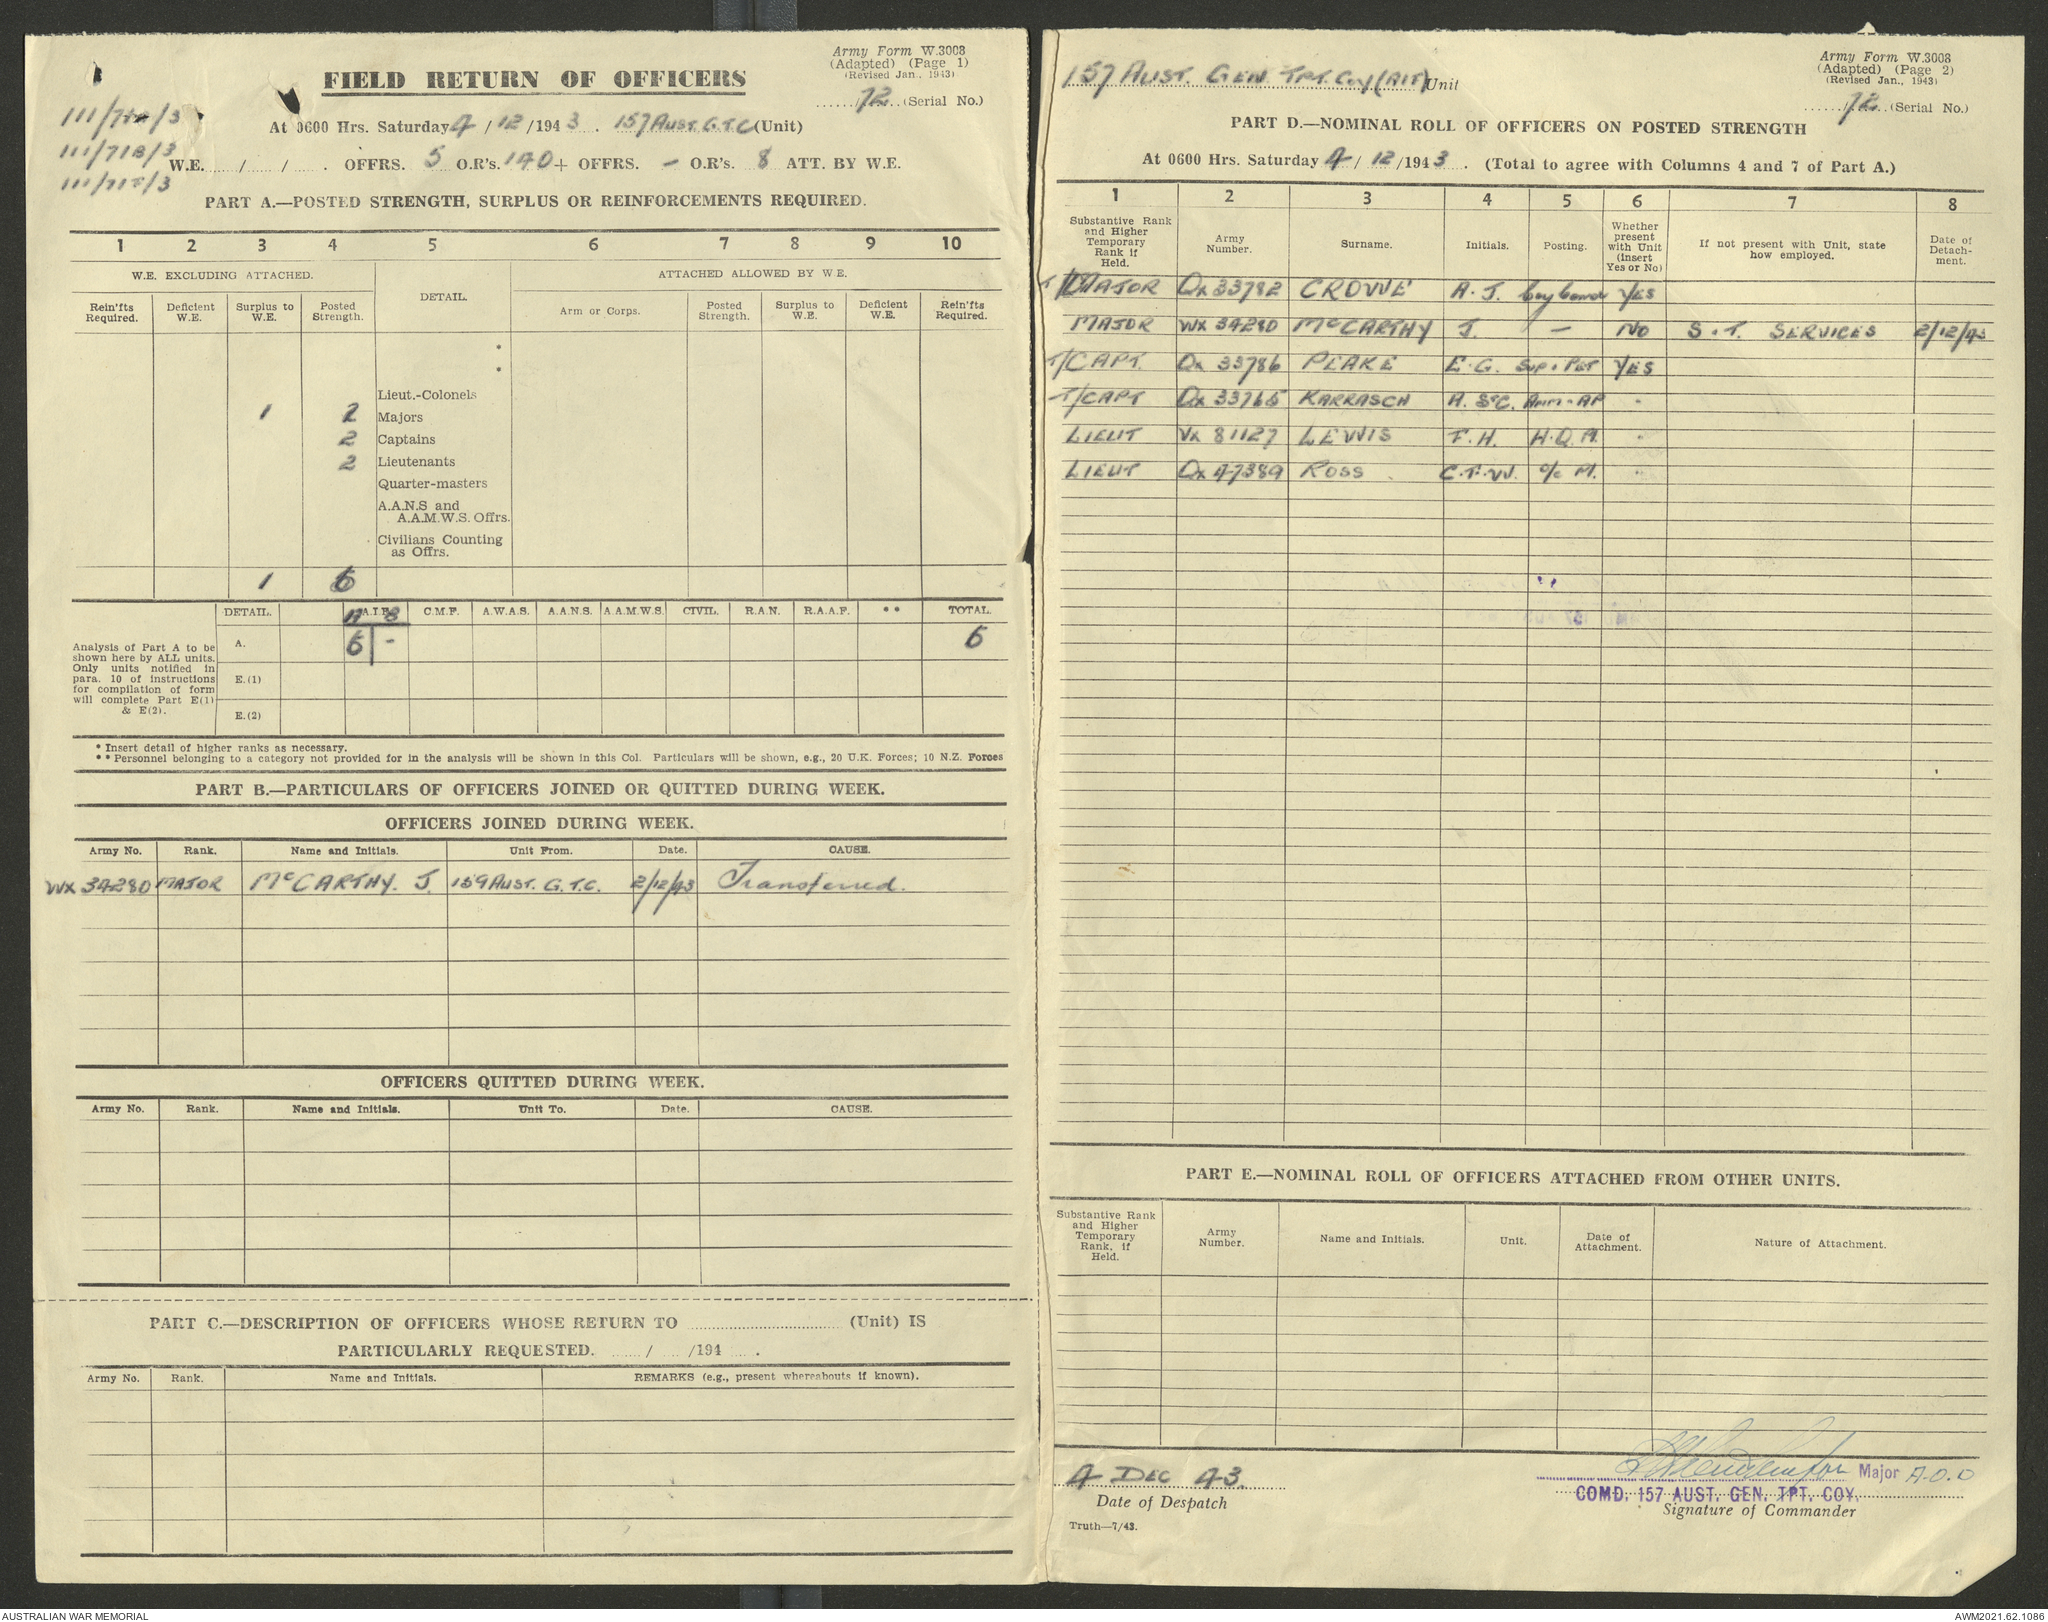 Army Form W.3008
(Adapted) (Page 1)
(Revised Jan., 1943)
FIELD RETURN OF OFFICERS
72 (Serial No.)
111/71A/3
At 0600 Hrs. Saturday 4/12/1943. 157 AUST. G.T.C (Unit)
111/71B/3
W.E. / / . OFFRS. 5 O.R's. 140 + OFFRS. - O.R's. 8 ATT. BY W.E.
/3
PART A.—POSTED STRENGTH, SURPLUS OR REINFORCEMENTS REQUIRED.
1 2 3 4 5 6 7 8 9 10
W.E. EXCLUDING ATTACHED. DETAIL. ATTACHED ALLOWED BY W.E.
Rein'fts Required. Deficient W.E. Surplus to W.E. Posted Strength. Arm or Corps. Posted Strength. Surplus to W.E. Deficient W.E. Rein'fts Required.
*
*
Lieut.-Colonels
1 2 Majors
2 Captains
2 Lieutenants
Quarter-masters
A.A.N.S and
A.A.M.W.S. Offrs.
Civilians Counting
as Offrs.
1 6
DETAIL. A.I.F. C.M.F. A.W.A.S. A.A.N.S. A.A.M.W.S. CIVIL. R.A.N. R.A.A.F. ** TOTAL.
A B
Analysis of Part A to be shown here by ALL units. Only units notified in para. 10 of instructions for compilation of form will complete Part E(1) & E(2).
A. 6 - 6
E.(1)
E.(2)
* Insert detail of higher ranks as necessary.
** Personnel belonging to a category not provided for in the analysis will be shown in this Col. Particulars will be shown, e.g., 20 U.K. Forces; 10 N.Z. Forces
PART B.—PARTICULARS OF OFFICERS JOINED OR QUITTED DURING WEEK.
OFFICERS JOINED DURING WEEK.
Army No. Rank. Name and Initials. Unit From. Date. CAUSE.
WX 34280 MAJOR McCARTHY. J. 159 AUST. G.T.C. 2/12/43 Transferred.
OFFICERS QUITTED DURING WEEK.
Army No. Rank. Name and Initials. Unit To. Date. CAUSE.
PART C.—DESCRIPTION OF OFFICERS WHOSE RETURN TO (Unit) IS
PARTICULARLY REQUESTED. / /194 .
Army No. Rank. Name and Initials. REMARKS (e.g., present whereabouts if known).
Army Form W.3008
(Adapted) (Page 2)
(Revised Jan., 1943)
157 AUST. GEN TPT. Coy (AIF) Unit
72 (Serial No.)
PART D.—NOMINAL ROLL OF OFFICERS ON POSTED STRENGTH
At 0600 Hrs. Saturday 4/12/1943. (Total to agree with Columns 4 and 7 of Part A.)
1 2 3 4 5 6 7 8
Substantive Rank and Higher Temporary Rank if Held. Army Number. Surname. Initials. Posting. Whether present with Unit (Insert Yes or No) If not present with Unit, state how employed. Date of Detachment.
T/MAJOR QX 33782 CROWE A. J. Coy Comdr YES
MAJOR WX 34280 McCARTHY J. - NO S. & T. SERVICES 2/12/43
T/CAPT. QX 33786 PEAKE E. G. Sup. & Pet YES
T/CAPT QX 33765 KARRASCH A. StC. Amm. AP "
LIEUT VX 81127 LEWIS F. H. H.Q. Pl. "
LIEUT QX 47389 ROSS C.F.W. O/C M. "
PART E.—NOMINAL ROLL OF OFFICERS ATTACHED FROM OTHER UNITS.
Substantive Rank and Higher Temporary Rank, if Held. Army Number. Name and Initials. Unit. Date of Attachment. Nature of Attachment.
4 DEC 43.
Date of Despatch
Major A.O.D
COMD. 157 AUST. GEN. TPT. COY.
Signature of Commander
Truth—7/43.
AUSTRALIAN WAR MEMORIAL
AWM2021.62.1086